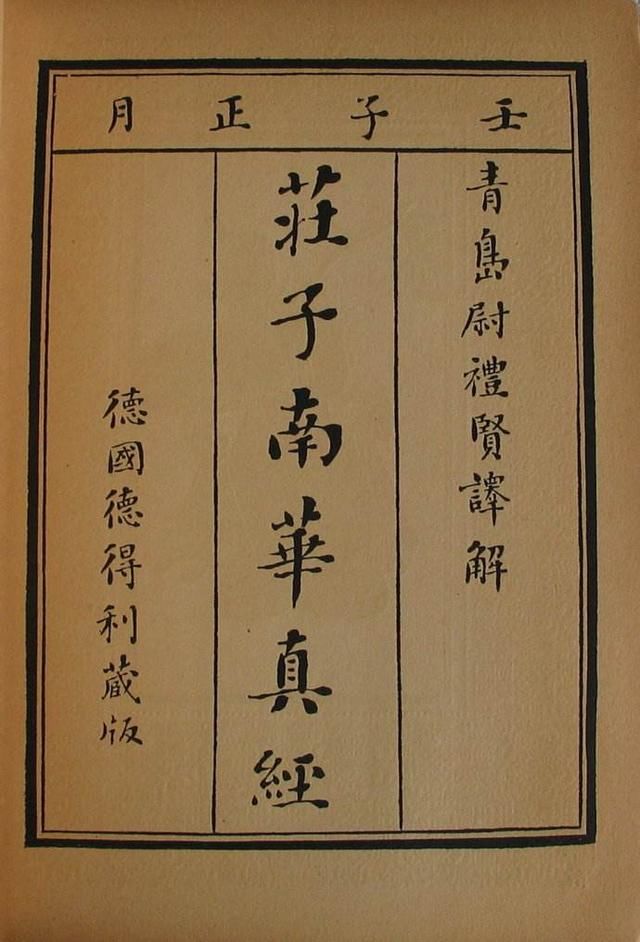 壬子正月
青島尉禮賢譯解
莊子南華真經
德國德得利藏版